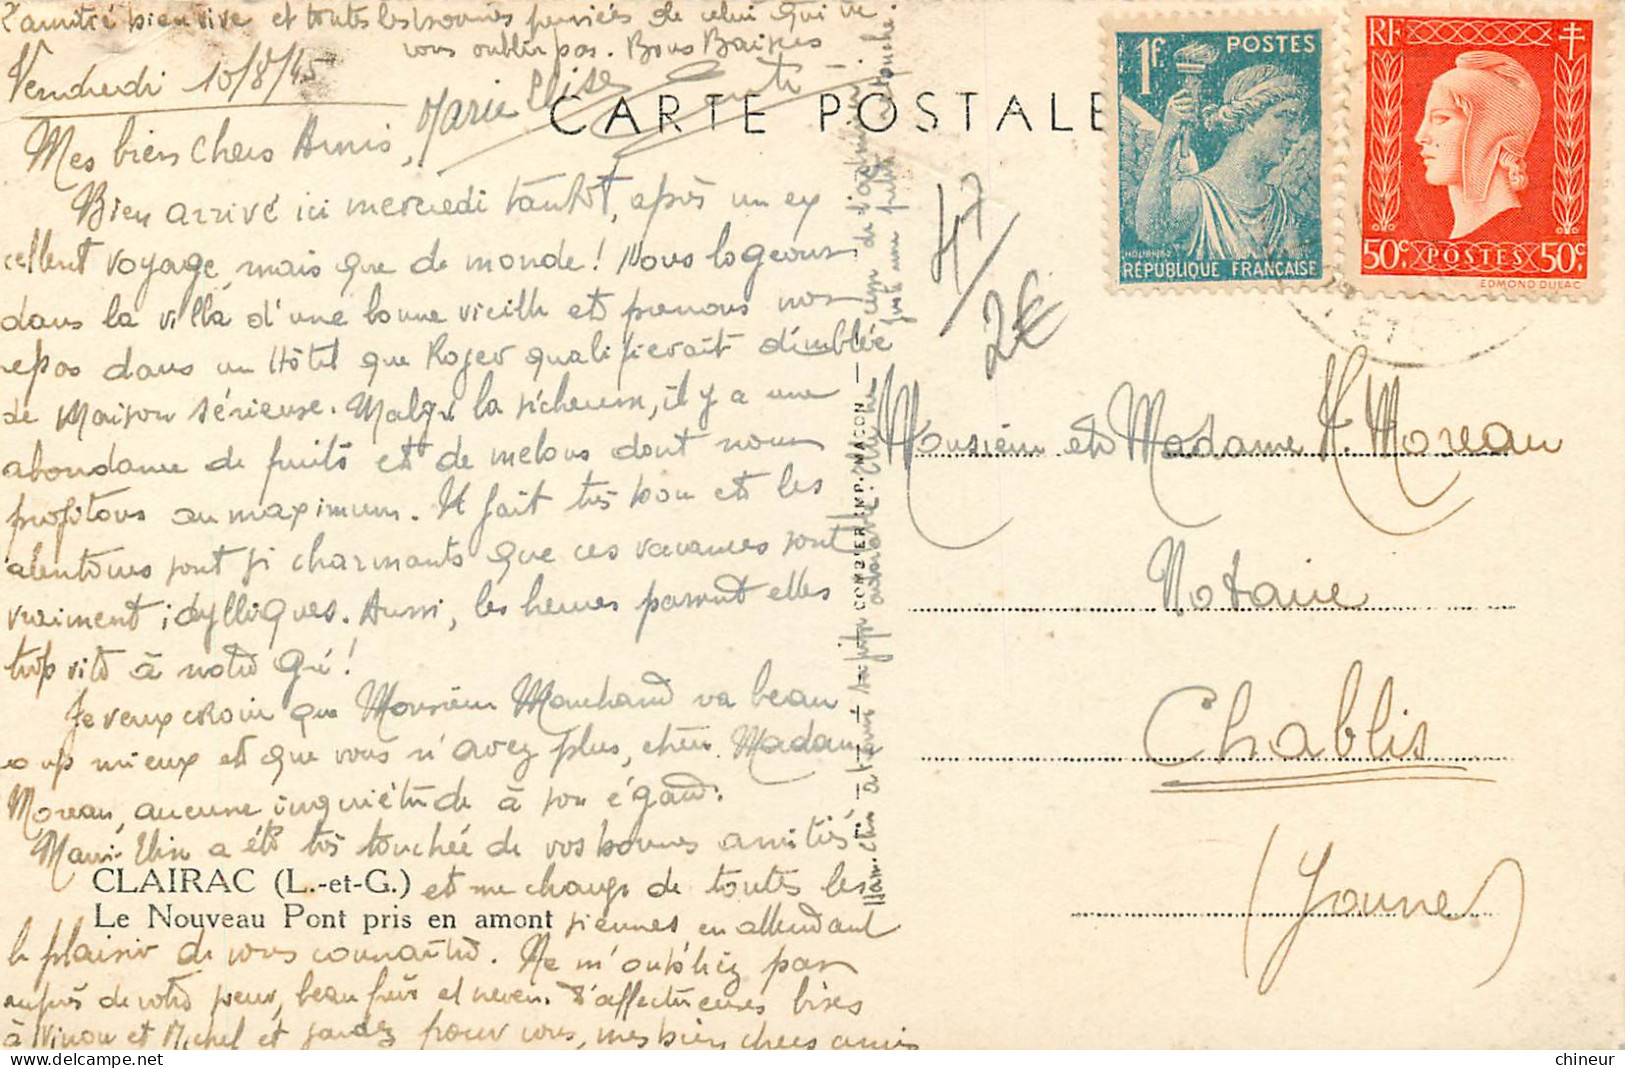 l'amitié bien vive et toutes les bonnes pensées de celui qui ne
vous oublie pas. Bons Baisers
Marie Elise
Vendredi 10/8/45
CARTE POSTALE
Mes bien chers Amis,
Bien arrivé ici mercredi tantôt, après un ex
cellent voyage, mais que de monde! Nous logeons
dans la villa d'une bonne vieille et prenons nos
repas dans un Hôtel que Roger qualifierait d'emblée
de Maison sérieuse. Malgré la sécheresse, il y a une
abondance de fruits et de melons dont nous
profitons au maximum. Il fait très bon et les
alentours sont si charmants que ces vacances sont
vraiment idylliques. Aussi, les heures passent elles
trop vite à notre gré!
Je veux croire que Monsieur Marchand va beau
coup mieux et que vous n'avez plus, chère Madame
Moreau, aucune inquiétude à son égard.
Marie-Elise a été très touchée de vos bonnes amitiés
CLAIRAC (L.-et-G.) et me charge de toutes les
Le Nouveau Pont pris en amont siennes en attendant
le plaisir de vous connaître. Ne m'oubliez pas
auprès de votre soeur, beau frère et neveu. D'affectueuses bises
à Ninou et Michel et gardez pour vous, mes bien chers amis
COMBIER IMP. MACON
47/
2€
1F POSTES
RÉPUBLIQUE FRANÇAISE
RF
50c POSTES 50c
EDMOND DULAC
Monsieur et Madame H. Moreau
Notaire
Chablis
(Yonne)
chineur